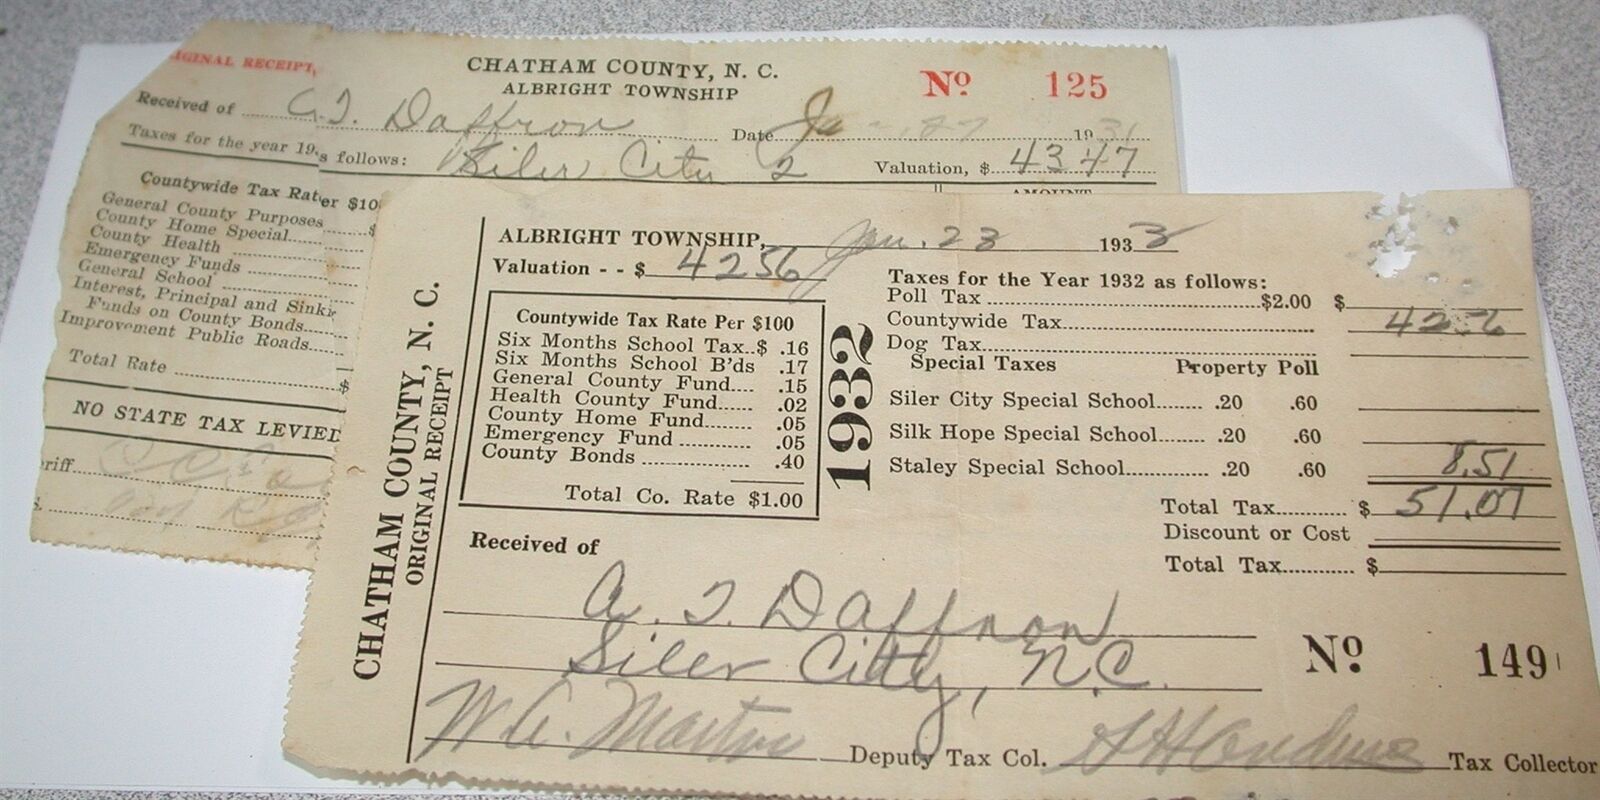 ORIGINAL RECEIPT,
CHATHAM COUNTY, N. C.
ALBRIGHT TOWNSHIP
No. 125
Received of A. T. Daffron Date 27 1931
Taxes for the year 19 s follows: Siler City 2 Valuation, $ 4347
AMOUNT
Countywide Tax Rate per $10
General County Purposes $
County Home Special
County Health
Emergency Funds
General School
Interest, Principal and Sinki
Funds on County Bonds
Improvement Public Roads
Total Rate $
NO STATE TAX LEVIED
riff
CHATHAM COUNTY, N. C.
ORIGINAL RECEIPT
ALBRIGHT TOWNSHIP, Jan. 23 1933
Valuation - - $ 4256
Countywide Tax Rate Per $100
Six Months School Tax..$ .16
Six Months School B'ds .17
General County Fund.... .15
Health County Fund...... .02
County Home Fund...... .05
Emergency Fund .......... .05
County Bonds .............. .40
Total Co. Rate $1.00
1932
Taxes for the Year 1932 as follows:
Poll Tax $2.00 $
Countywide Tax 42.56
Dog Tax
Special Taxes Property Poll
Siler City Special School........ .20 .60
Silk Hope Special School....... .20 .60
Staley Special School............. .20 .60 8.51
Total Tax............ $ 51.07
Discount or Cost
Total Tax............ $
Received of
A. T. Daffron
Siler City, N.C.
No. 149
W. A. Deputy Tax Col. Tax Collector